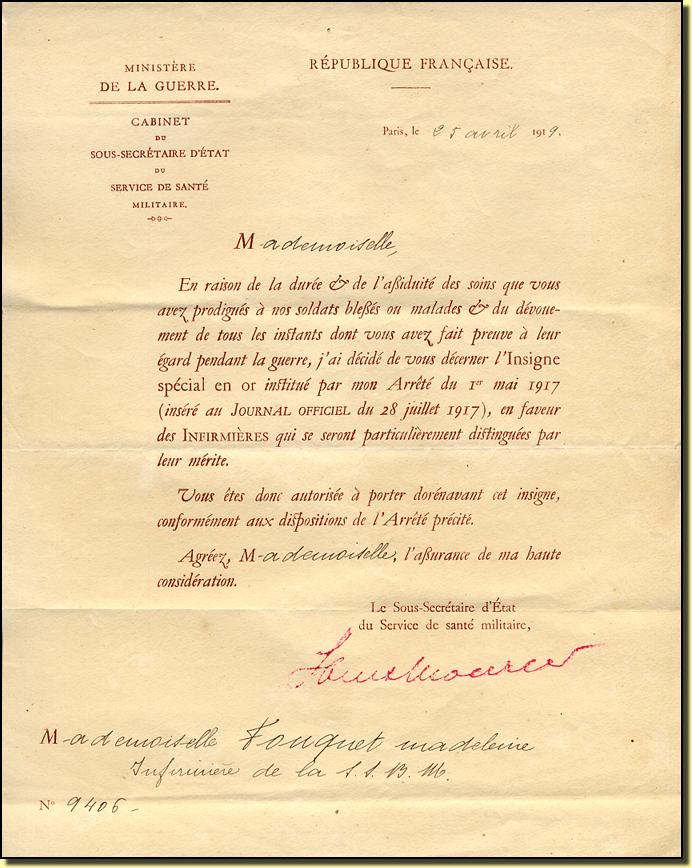 MINISTÈRE
DE LA GUERRE.
CABINET
DU
SOUS-SECRÉTAIRE D'ÉTAT
DU
SERVICE DE SANTÉ
MILITAIRE.
RÉPUBLIQUE FRANÇAISE.
Paris, le 25 avril 1919.
Mademoiselle,
En raison de la durée & de l'assiduité des soins que vous
avez prodigués à nos soldats blessés ou malades & du dévoue-
ment de tous les instants dont vous avez fait preuve à leur
égard pendant la guerre, j'ai décidé de vous décerner l'Insigne
spécial en or institué par mon Arrêté du 1er mai 1917
(inséré au JOURNAL OFFICIEL du 28 juillet 1917), en faveur
des INFIRMIÈRES qui se seront particulièrement distinguées par
leur mérite.
Vous êtes donc autorisée à porter dorénavant cet insigne,
conformément aux dispositions de l'Arrêté précité.
Agréez, Mademoiselle, l'assurance de ma haute
considération.
Le Sous-Secrétaire d'État
du Service de santé militaire,
Mademoiselle Fouquet madeleine
Infirmière de la S.S.B.M.
No 9406 -